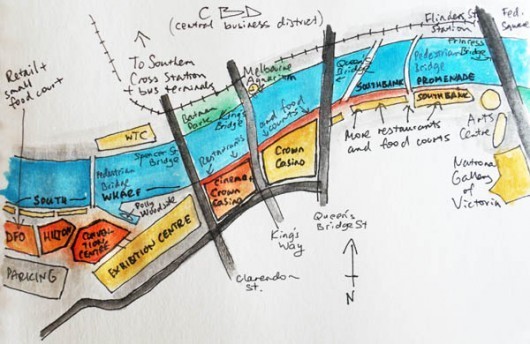 CBD
(central business district)
Flinders St
Station
Fed.
Square
To Southern
Cross Station
+ bus terminals
Retail +
small
food court
Melbourne
Aquarium
Batman
Park
King's
Bridge
Queen's
Bridge
Pedestrian
Bridge
Princess
Bridge
SOUTHBANK
PROMENADE
and food
courts
Restaurants
SOUTHBANK
More restaurants
and food courts
Arts
Centre
National
Gallery
of
Victoria
WTC
Spencer St
Bridge
Pedestrian
Bridge
SOUTH
WHARF
Polly
Woodside
Crown
Casino
Cinema +
Crown
Casino
DFO
HILTON
CONVEN-
TION
CENTRE
EXHIBITION CENTRE
PARKING
Queen's
Bridge St
King's
Way
Clarendon
St.
N